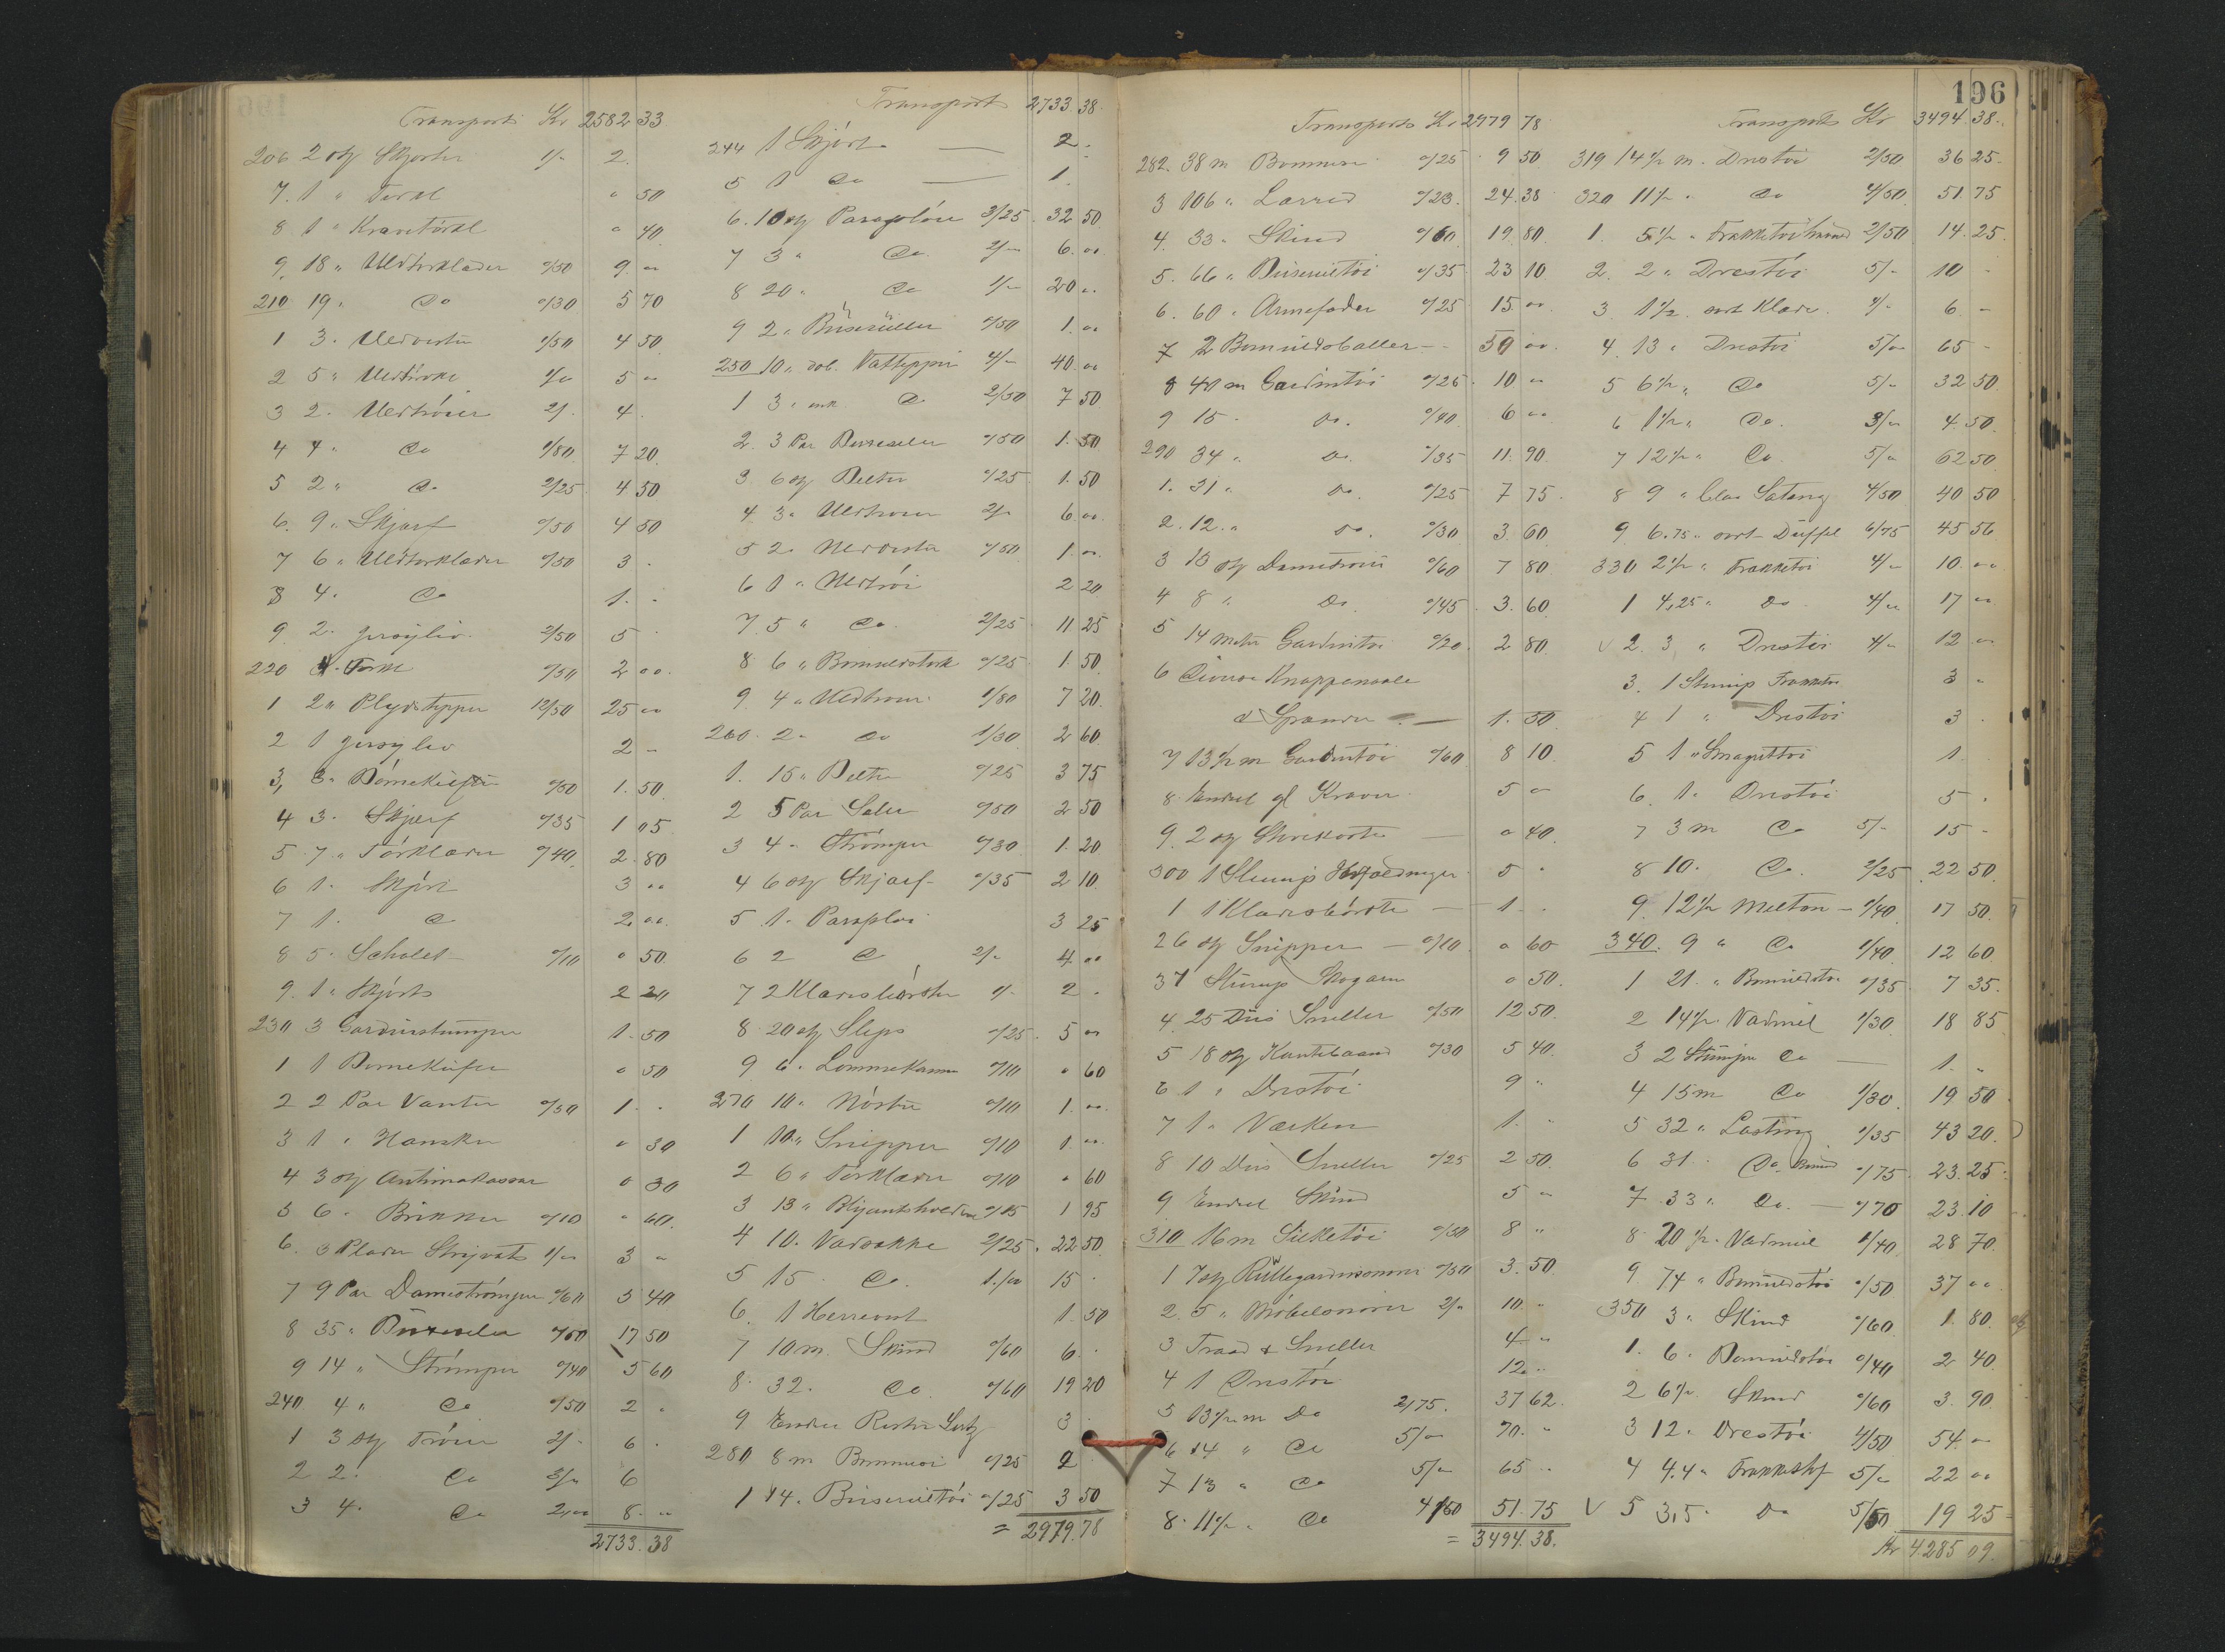 Transport Kr 2582 33
206 2 stk Skjorter 1/- 2.
7. 1 " Tørkl " 50
8 1 " Kravetörkl " 40
9. 18 " Uldtørklæder "/50 9. "
210 19 " Do "/30 5 70
1 3. Uldveste 1/50 4 50
2 5 " 1/" 5 "
3 2. Uldtröier 2/- 4.
4 4 " Do 1/80 7 20
5 2 " Do 2/25 4 50
6. 9 " Skjærf "/50 4 50
7 6 " Uldtørklæder "/50 3 -
8 4. Do 1. -
9 2. Jersyliv 2/50 5
220 4. Tørkl "/50 2 ""
1 2 " Plydstepper 12/50 25 ""
2 1 Jersyliv 2 -
3, 3. "/50 1. 50
4 3. Skjerf "/35 1 05
5 7. " Törklæder "/40 2. 80
6 1. Skjört 3 ""
7 1. Do 2. ""
8 5. "/10 " 50
9. 1 " Skjörts 2 20
230 3 Gardinstumper 1. 50
1 1 " 50
2 2 Par Vanter "/50 1. -
3 1 " Hansker " 30
4 3 stk Antimakassar " 30
5 6. Brikker "/10 " 60.
6. 3 1/"" 3 "
7 9 Par Dameströmper "/60 5 40
8 35 " Buxeseler "/50 17 50
9 14 " Strömper "/40 5 60
240 4 " Do "/50 2 "
1 3 stk Tröier 2/- 6 -
2 2. Do 3/" 6
3 4. Do 2,"" 8. ""
2733. 38
Transport 2733. 38.
244 1 Skjört — 2.
5 1 Do — 1.
6. 10 stk Parasoller 3/25 32 50
7 3 " Do 2/- 6. ""
8 20. Do 1/- 20 "
9 2. "/50 1. ""
250 10 " dob. Vattepper 4/- 40. ""
1 3. enk. Do 2/50 7 50
2. 3 Par Buxeseler "/50 1. 50
3. 6 stk Belter "/25 1. 50
4. 3 " Uldtroier 2/" 6. ""
5 2. Uldveste "/50 1. "".
6 1 " Uldtröi 2 20
7. 5 " Do. 2/25 11 25
8 6 " "/25 1. 50
9. 4 " Uldtroier 1/80 7 20
260. 2. Do 1/30 2 60
1. 15 " Belter "/25 3 75
2 5 Par Seler "/50 2 50
3 4 - Strömper "/30 1. 20
4 6 stk Skjærf "/35 2 10
5 1. Paraploi 3 25
6 2 Do 2/- 4 ""
7 2 Klædesbörster 1/- 2 -
8 20 stk Slips "/25. 5 ""
9 6. Lommekamme "/10 " 60
270 10 " Nöster "/10 1. ""
1 10 " Snipper "/10 1. ""
2 6 " Törklæder "/10 " 60
3 13 " Blyantsholdere "/15 1 95
4 10. Vadsække 2/25. 22 50
5 15 Do. 1./"" 15 -
6. 1 Herrevest 1. 50
7 10 m. Skind "/60 6. -
8. 32. Do. "/60 19 20
9 Endel Rester 3
280 8 m Bommesi "/25 2
1 14. Buxeuldtöi "/25 3 50
= 2979.78
196
Transport Kr 2979 78
282. 38 m Bommesi "/25 9 50
3 106 " Lærred "/23. 24. 38
4. 33 - Skind "/60 19. 80
5. 66 " "/35 23 10
6. 60 " Armefoder "/25 15. ""
7 2 Bomuldsballer -- 50 "".
8 40 m Gardintöi "/25 10 "
9 15 - Do. "/40 6 ""
290 34 " Do. "/35 11. 90
1. 31 " Do. "/25 7 75
2. 12. " Do. "/30 3. 60
3 13 stk Dametroier "/60 7 80
4 8 " Do. "/45 3. 60
5 14 meter Gardintoi "/20 2 80
6 Diverse Knappenaale
& Spænder — 1. 50
7 13 1/2 m Gardintöi "/60 8 10
8. Endel gl Kraver 5 "
9. 2 stk — " 40
300 1 Stump 5 "
1 1 Klædesbörste — 1. -
2 6 stk Snipper — "/10 " 60
3 1 Stump " 50
4. 25 Dus Sneller "/50 12 50.
5 18 stk Kantebaand "/30 5 40.
6 1 " Drestöi 9 "
7 1 " Vækker 1. -
8 10 Dus Sneller "/25 2 50
9 Endel Skind 5 "
310 16 m Silketöi "/50 8 "
1 7 stk Rullegardinsnorer "/50 3. 50
2. 5 " Möbelsnorer 2/" 10. "
3 Traad & Sneller 4 "
4 1 Drestöi 12. "
5 13 1/2 m Do 2/75. 37 62
6 14 " Do 5/"" 70. -
7 13 " Do 5/" 65 "
8. 11 1/2 " Do 4/50 51. 75
= 3494. 38.
Transport Kr 3494. 38.
319 14 1/2 m. Drestoi 2/50 36 25
320 11 1/2 " Do 4/50 51. 75
1. 5 1/2 " 2/50 14. 25
2. 2 " Drestöi 5/- 10 -
3 1 1/2 sort Klæde 4/- 6 -
4 13 " Drestöi 5/" 65 -
5 6 1/2 " Do 5/- 32 50
6 1 1/2 " Do. 3/" 4. 50
7 12 1/2 " Do 5/" 62 50
8 9 " 4/50 40 50
9 6.75 " sort Düffel 6/75 45 56
330 2 1/2 " Frakketöi 4/" 10. ""
1 4,25 " Do 4/" 17 ""
V 2. 3 " Drestöi 4/- 12 ""
3. 1 Stump Frakketöi 3 "
4 1 " Drestöi 3
5 1 " 1.
6. 1. Drestöi 5 "
7 3 m Do 5/- 15 -
8 10. Do. 2/25 22 50
9. 12 1/2 Melton — 1/40 17 50.
340. 9 " Do 1/40 12 60
1 21. " Bomuldstoi "/35 7 35.
2 14 1/2 Vadmel 1/30 18 85
3 2 Stumper Do — 1. "
4 15 m Do 1/30 19 50
5 32 " Lasting 1/35 43 20.
6 31. Do. "/75. 23. 25
7 33 " Do. — "/70 23. 10
8. 20 1/2 Vadmel 1/40 28 70
9. 74 " Bomuldstöi "/50 37 ""
350 3 " Skind "/60 1. 80
1. 6. Bomuldstöi "/40 2 40
2 6 1/2 Skind "/60 3. 90
3 12. Drestöi 4/50 54. "
4 4.4 " 5/" 22 ""
V 5 3,5 " Do 5/50 19 25
Kr 4285 09.